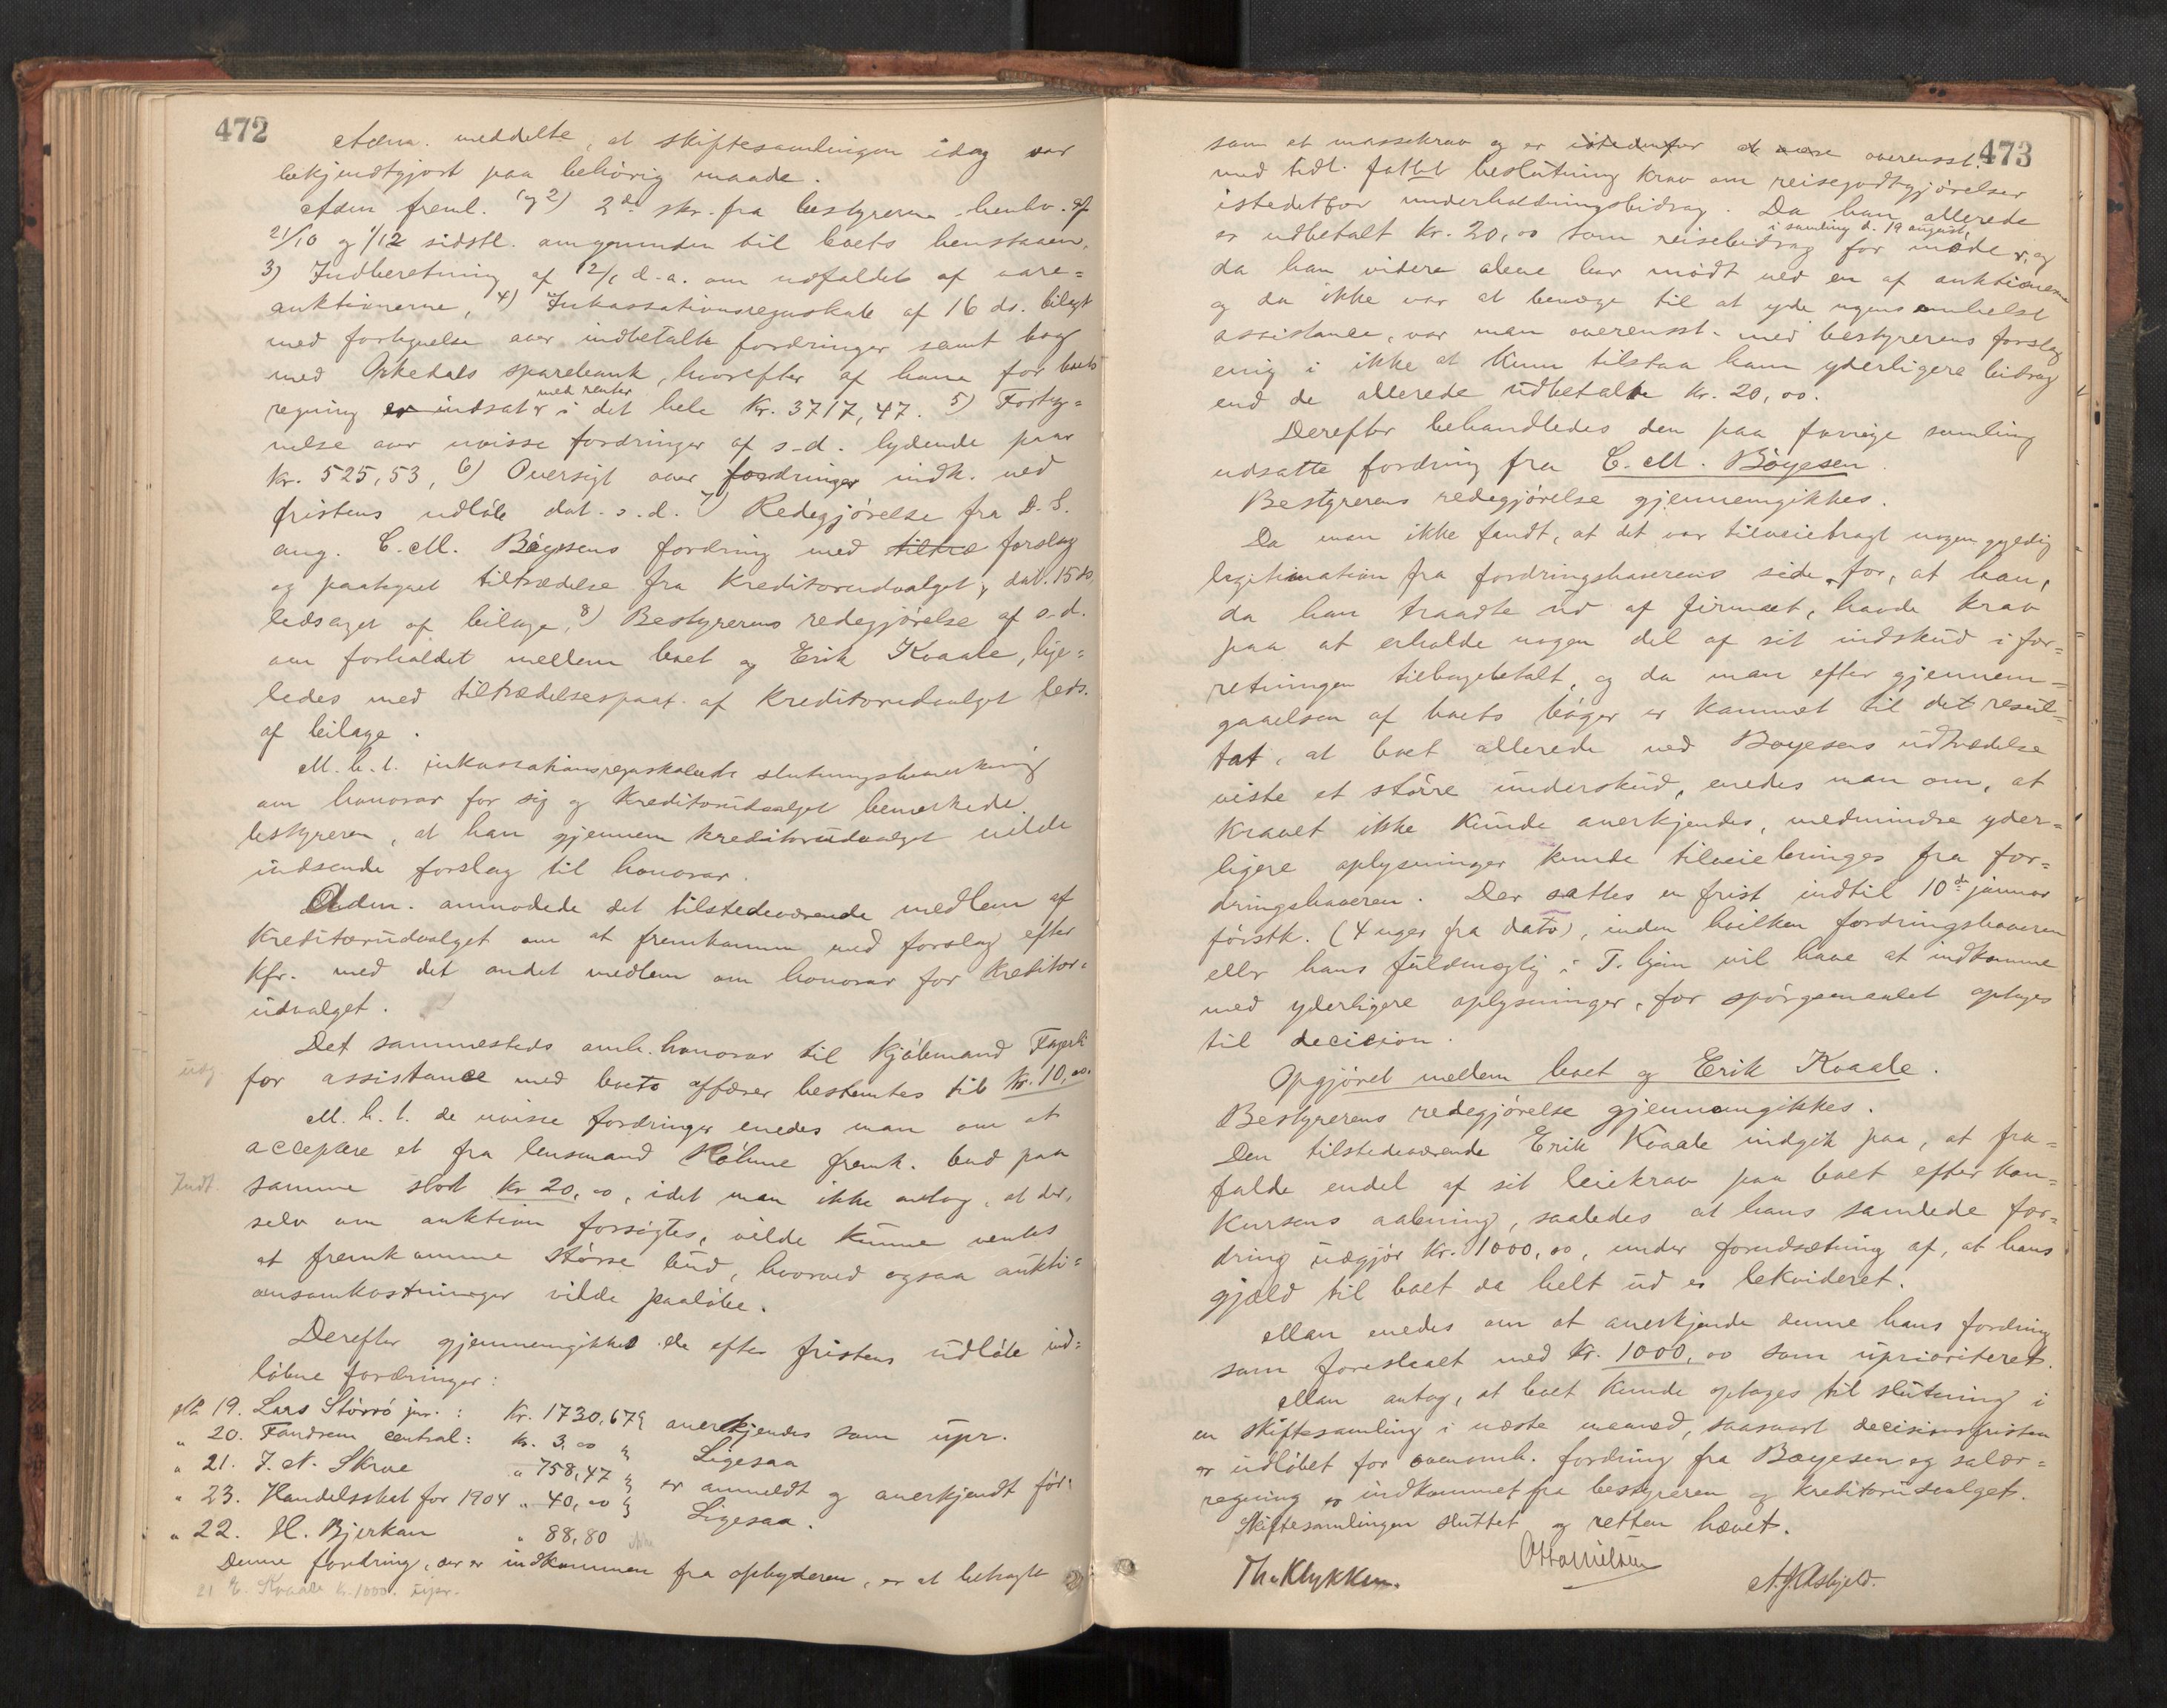 472
Adm. meddelte, at skiftesamlingen idag var
bekjendtgjort paa behörig maade.
Adm freml. 1 og 2) 2de skr. fra bestyreren henhv. af
21/10 og 1/12 sidstl. angaaende til boets henstaaen.
3) Indberetning af 12/1 d.a. om udfaldet af vare=
auktionerne, 4) Inkassationsregnskab af 16 ds. bilagt
med fortegnelse over indbetalte fordringer samt bog
med Orkedals sparebank, hvorefter af ham for boets
regning er indsat med renter i det hele Kr. 3717,47. 5) Forteg=
nelse over uvisse fordringer af s.d. lydende paa
Kr. 525,53, 6) Oversigt over fordringer indk. ved
fristens udløb dat. s.d. 7) Redegjörelse fra D.S.
ang. C.M. Böyesens fordring med tiltræ forslag
og paategnet tiltrædelse fra Kreditorudvalget, dat. 15 ds.
ledsaget af bilage, 8) Bestyrerens redegjörelse af s.d.
om forholdet mellem boet og Erik Kvaale, lige=
ledes med tiltrædelsespaat. af Kreditorudvalget leds.
af bilage.
M.h.t. inkassationsregnskabets slutningsbemerkning
om honorar for sig og Kreditorudvalget bemerkede
bestyreren, at han gjennem kreditorudvalget vilde
indsende forslag til honorar.
Adm. anmodede det tilstedeværende medlem af
Kreditorudvalget om at fremkomme med forslag efter
Kfr. med det andet medlem om honorar for Kreditor=
udvalget.
Det sammesteds omh. honorar til Kjöbmand Fagerli
udg.
for assistance med boets affærer bestemtes til Kr. 10,00.
M.h.t. de uvisse fordringer enedes man om at
acceptere et fra lensmand Böhme fremk. bud paa
Indt.
samme stort Kr 20,00, idet man ikke antog, at der,
selv om auktion forsögtes, vilde kunne ventes
at fremkomme större bud, hvorved ogsaa aukti=
onsomkostninger vilde paalöbe.
Derefter gjennemgikkes de efter fristens udlöb ind=
löbne fordringer:
No. 19. Lars Störrö jnr.: Kr. 1730,67 anerkjendes som upr.
" 20. Fandrem central: Kr. 3,00 Ligesaa
" 21. J. N. Skroe " 758,47 er anmeldt og anerkjendt för.
" 23. Handelsskat for 1904 " 40,00 Ligesaa.
" 22. H. Bjerkan " 88,80
Denne fordring, der er indkommen fra opbyderen, er at betragte
21 E. Kvaale kr. 1000. upr.
473
som et massekrav og er istedenfor at være overensst.
med tidl. fattet beslutning krav om reisegodtgjörelser
istedetfor underholdningsbidrag. Da han allerede
i samling d. 19 august,
er udbetalt Kr. 20,00 som reisebidrag for möde, og
da han videre alene har mödt ved en af auktionerne
og da ikke var at bevæge til at yde nogensomhelst
assistance, var man overensst. med bestyrerens forslag
enig i ikke at kunne tilstaa ham yderligere bidrag
end de allerede udbetalte kr. 20,00.
Derefter behandledes den paa forrige samling
udsatte fordring fra C. M. Böyesen.
Bestyrerens redegjörelse gjennemgikkes.
Da man ikke fandt, at det var tilveiebragt nogen gyldig
legitimation fra fordringshaverens side for, at han,
da han traadte ud af firmaet, havde krav
paa at erholde nogen del af sit indskud i for=
retningen tilbagebetalt, og da man efter gjennem=
gaaelsen af boets böger er kommet til det resul=
tat, at boet allerede ved Boyesens udtrædelse
viste et större underskud, enedes man om, at
Kravet ikke kunde anerkjendes, medmindre yder=
ligere oplysninger kunde tilveiebringes fra for=
dringshaveren. Der sattes en frist indtil 10de januar
förstk. (4 uger fra dato), inden hvilken fordringshaveren
eller hans fuldmægtig i T.hjem vil have at indkomme
med yderligere oplysninger, før spörgsmaalet optages
til decision.
Opgjöret mellem boet og Erik Kvaale.
Bestyrerens redegjörelse gjennemgikkes.
Den tilstedeværende Erik Kvaale indgik paa, at fra=
falde endel af sit leiekrav paa boet efter kon=
kursens aabning, saaledes at hans samlede for=
dring udgjör Kr. 1000,00, under forudsætning af, at hans
gjæld til boet da helt ud er likvideret.
Man enedes om at anerkjende denne hans fordring
som foreslaaet med Kr. 1000,00 som uprioriteret.
Man antog, at boet kunde optages til slutning i
en skiftesamling i næste maaned, saasnart decisionsfristen
er udlöbet for ovenomh. fordring fra Boyesen og salær=
regning er indkommet fra bestyreren og kreditorudvalget.
Skiftesamlingen sluttet og retten hævet.
Th. Klykken. Otto Nielsen A. J. Asbjeld.